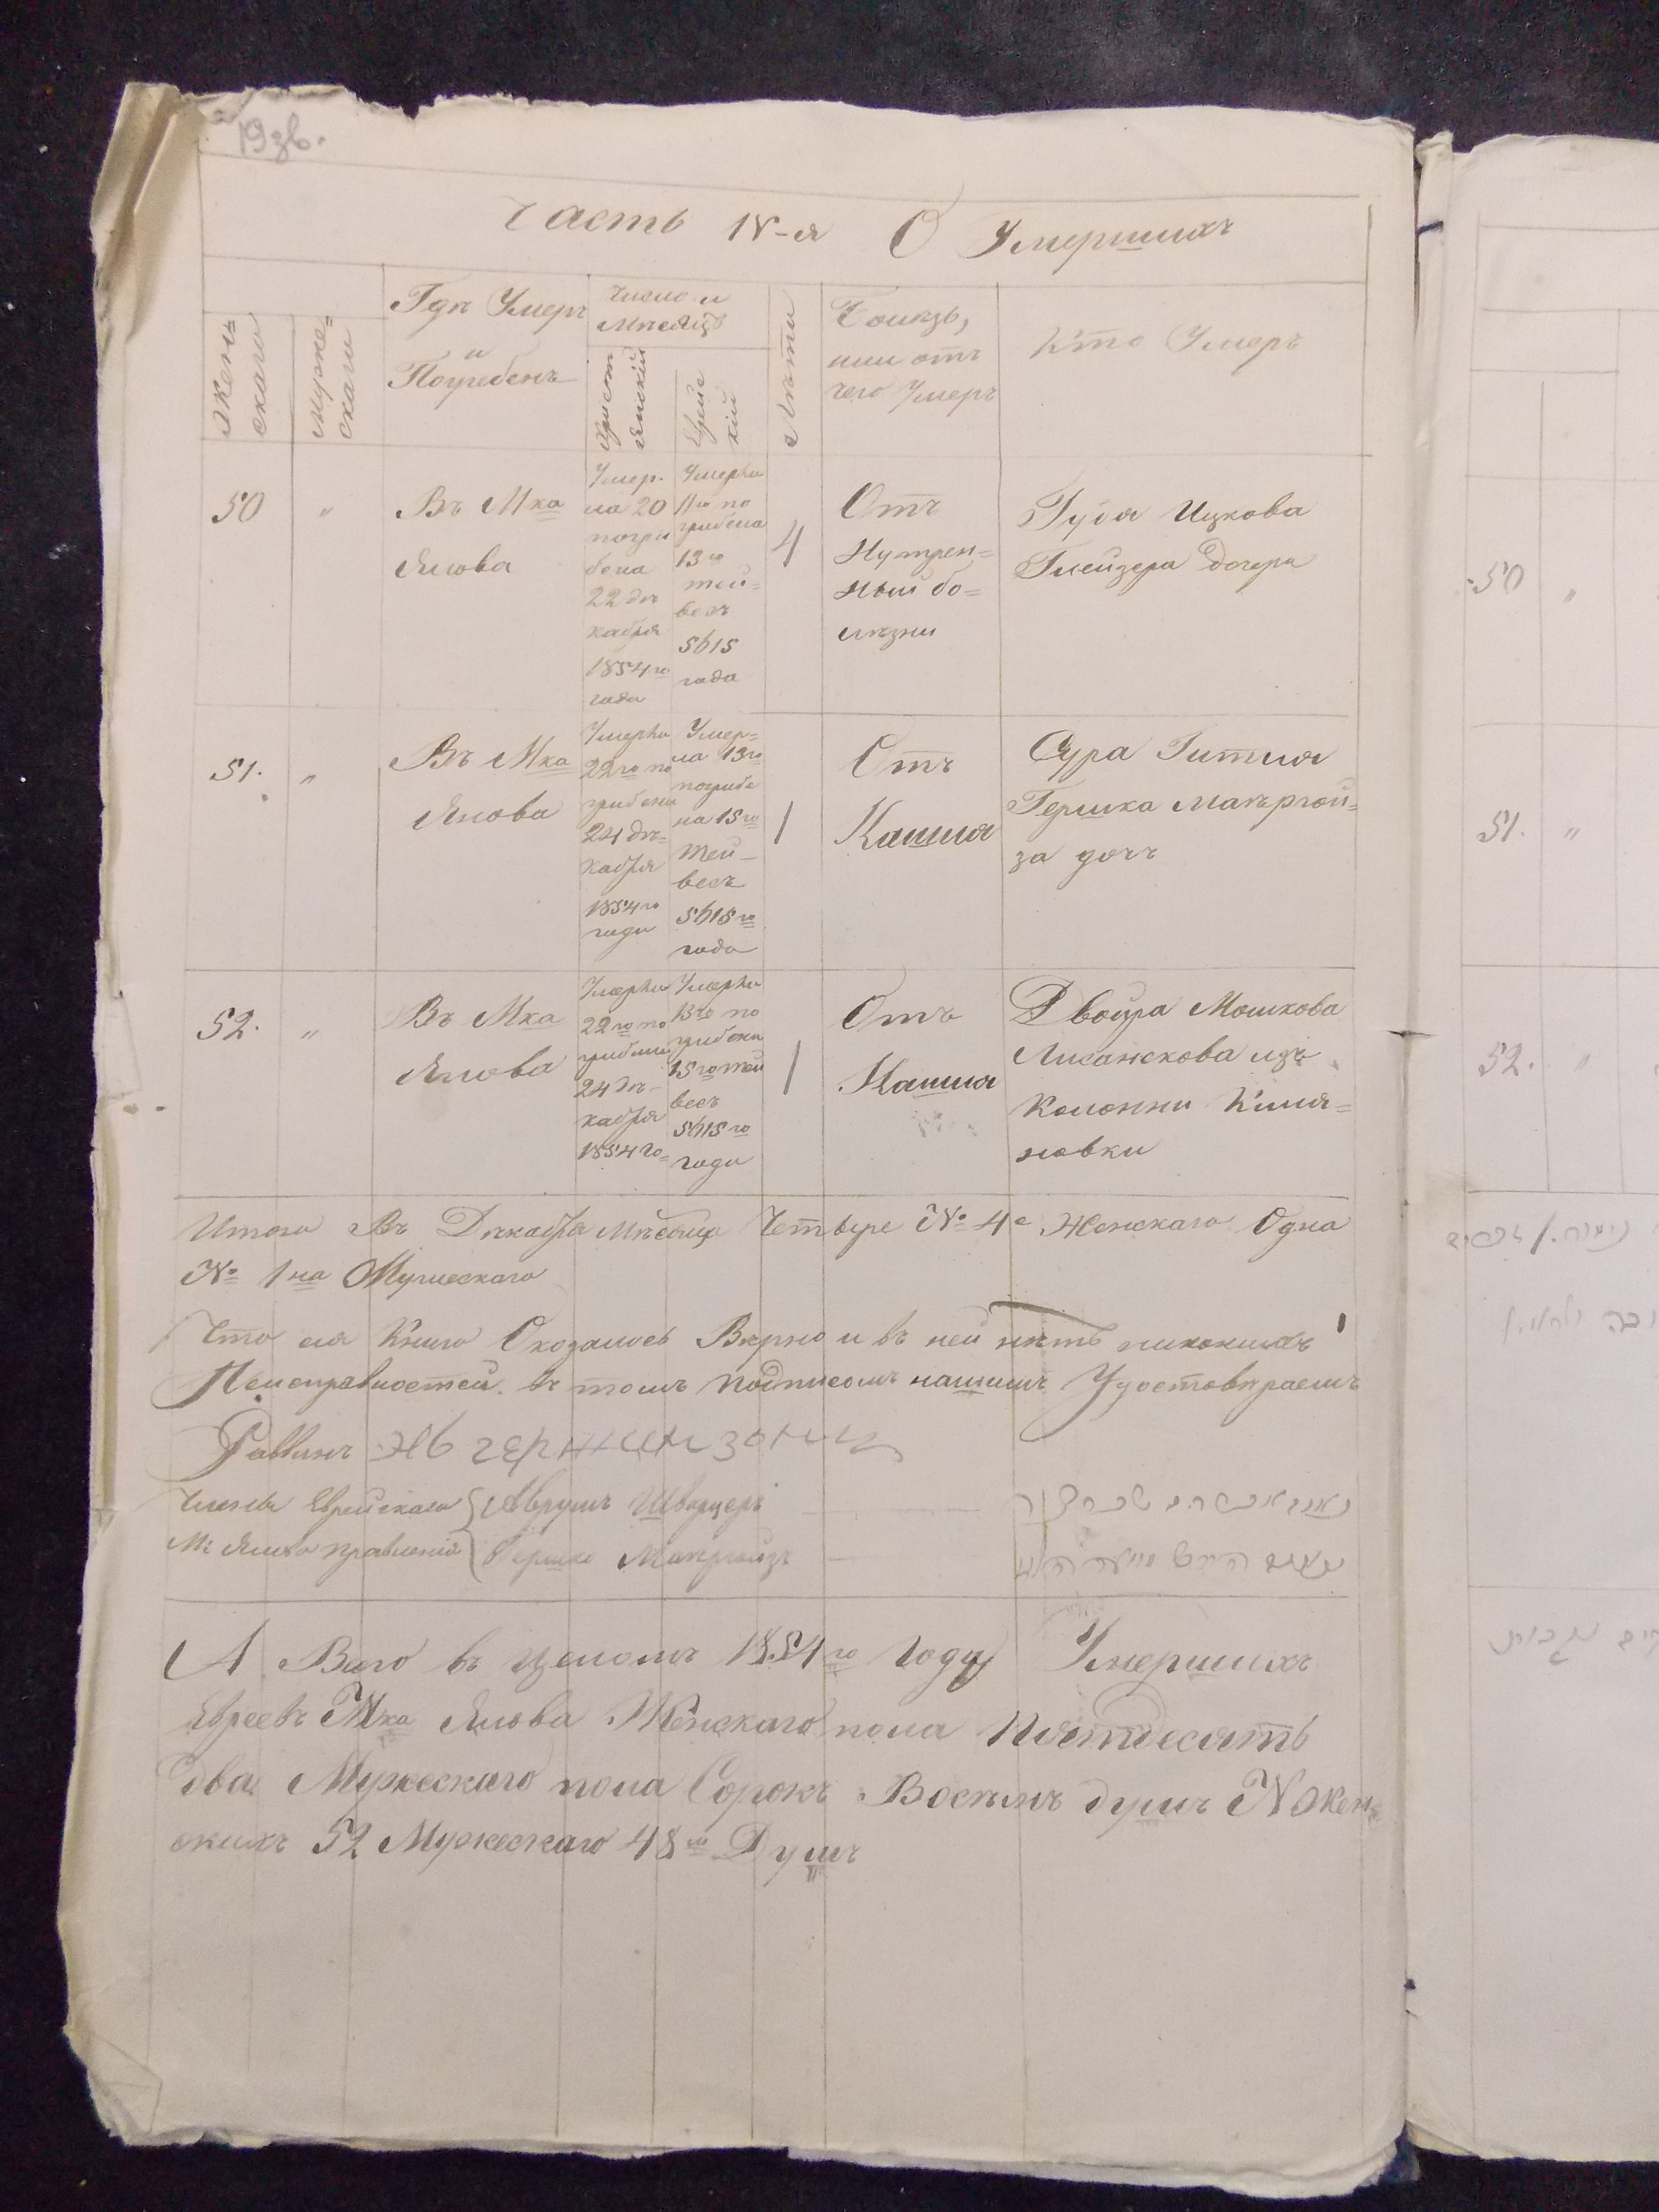 19зв.
Часть IV-я О Умершихъ
Женскаго
Мужескаго
Гдѣ Умеръ
и
Погребенъ
Число и
Мѣсяцъ
Христіянскій
Еврейскій
Лѣты
Болѣзь,
или отъ
чего Умеръ
Кто Умеръ
50
"
Въ Мка
Янова
Умер.
ла 20
погри
бена
22 дѣ
кабря
1854го
года
Умерла
11го по
грибена
13го
тей=
весъ
5615
года
4
Отъ
Нутрен=
ный бо=
лѣзни
Гудя Ицкова
Глейзера дочера
51.
"
Въ Мка
Янова
Умерла
22го по
грибена
24 дѣ=
кабря
1854го
года
Умер=
ла 13го
погрибе
на 15го
Тей-
весъ
5615го
года
1
Отъ
Кашля
Сура Гитля
Гершка Макъргой=
за дочъ
52.
"
Въ Мка
Янова
Умерла
22го по
грибена
24 дѣ-
кабря
1854го=
Умерла
13го по
грибена
15го тей
весъ
5615го
года
1
Отъ
Кашля
Двойра Мошкова
Лисанскова изъ
Колонии
новки
Итого Въ Дѣкабря Мѣсеца Четыре № 4е Женскаго Одна
№ 1на Мужескаго
Что сия Книго Оказалось Вѣрно и въ ней нѣтъ никокихъ
Неисправностей. въ томъ подписомъ нашимъ Удостовѣраемъ
Раввинъ
Члены Еврейскаго Аврумъ Шварцеръ
М: Янова правленія Гершко Макъргойзъ
А Всего въ целомъ 1854го Году Умершихъ
Евреевъ Мка Янова Женскаго пола Пятдесятъ
два Мужескаго пола Сорокъ Восѣмъ душъ № Жен
скихъ 52 Мужескаго 48м Душъ
50
"
51.
"
52.
"